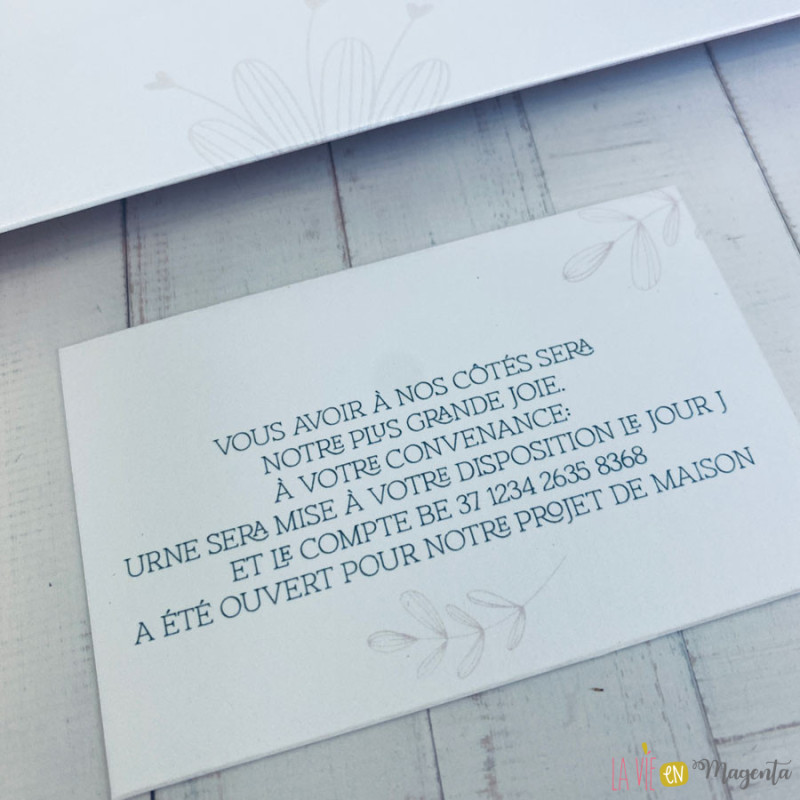 VOUS AVOIR À NOS CÔTÉS SERA
NOTRE PLUS GRANDE JOIE.
À VOTRE CONVENANCE:
URNE SERA MISE À VOTRE DISPOSITION LE JOUR J
ET LE COMPTE BE 37 1234 2635 8368
A ÉTÉ OUVERT POUR NOTRE PROJET DE MAISON
LA VIE EN Magenta